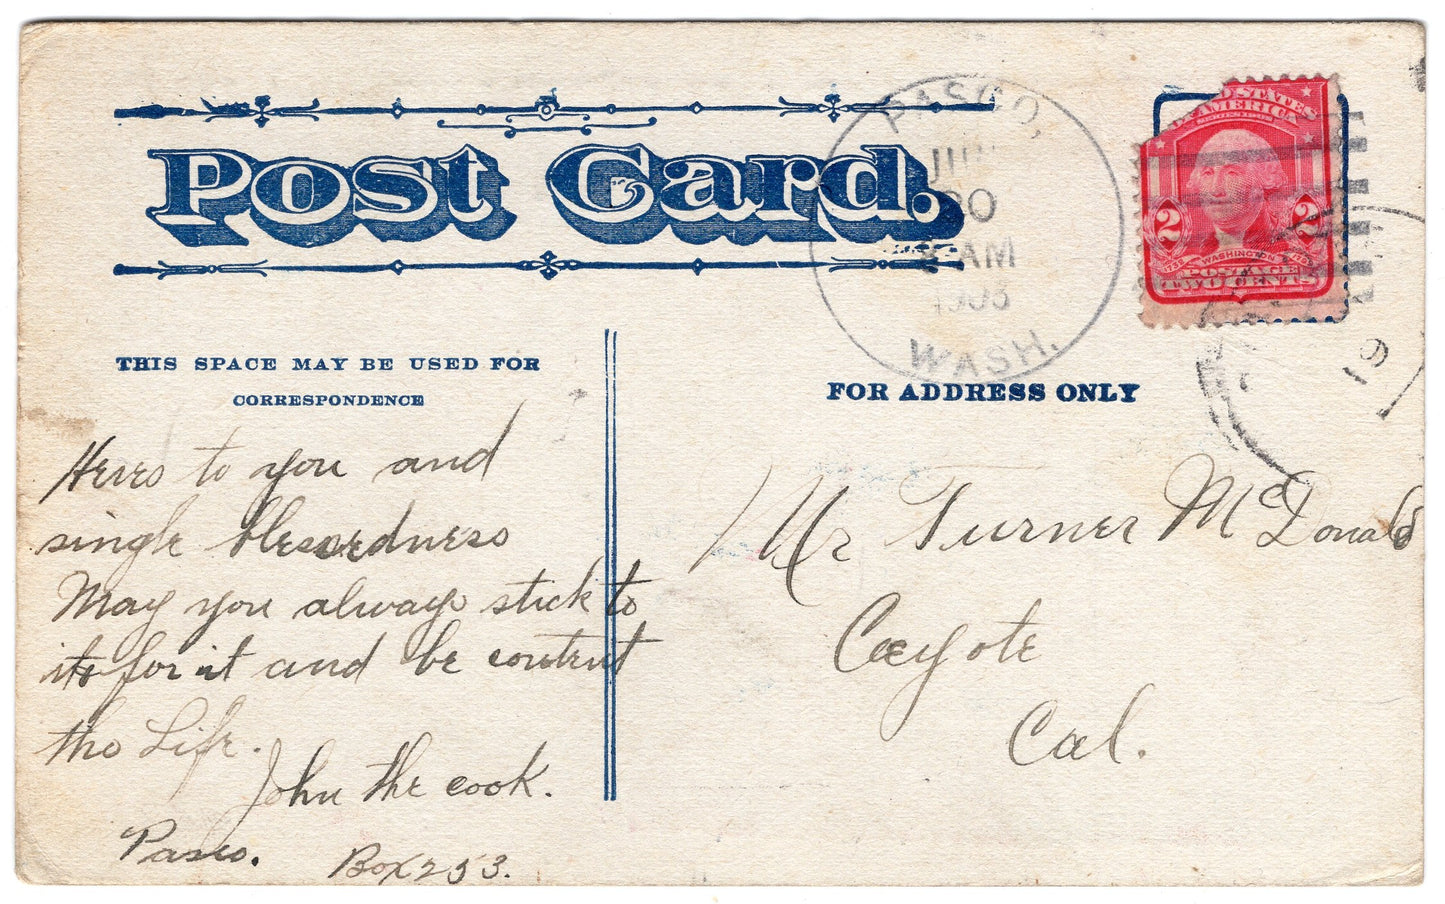 Post Card.
PASCO,
AM
WASH.
UNITED STATES
OF AMERICA
2 2
WASHINGTON
POSTAGE
TWO CENTS
THIS SPACE MAY BE USED FOR
CORRESPONDENCE
FOR ADDRESS ONLY
Heres to you and
single blessedness
May you always stick to
it for it and be content
tho Life.
John the cook.
Pasco. Box 253.
Mr Turner McDonald
Coyote
Cal.